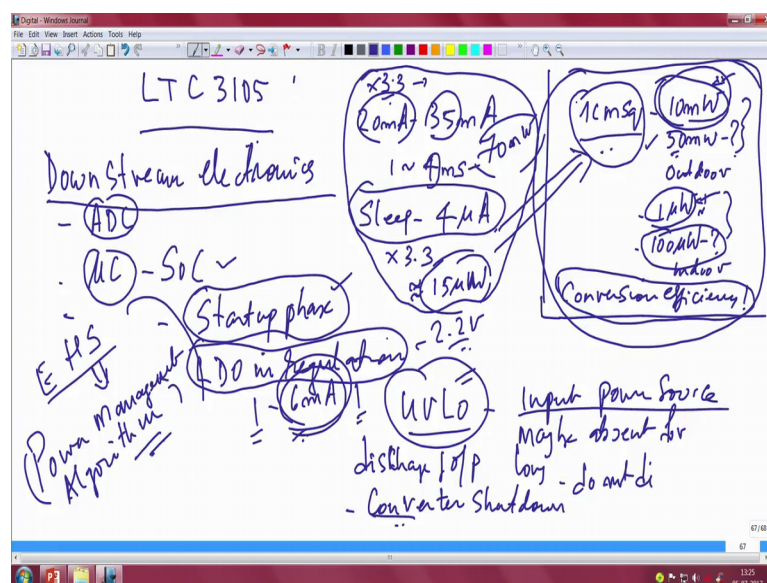 Digital - Windows Journal
File Edit View Insert Actions Tools Help
LTC 3105
Downstream electronics
- ADC
- uC - SoC
- Startup phase
LDO in Regulation
1 - 6mA
EHS
Power Management
Algorithm ?
x3.3 →
20mA - 35mA
70mW
1 ~ 4ms
Sleep - 4μA
x 3.3
≈ 15μW
- 2.2V
UVLO -
discharge of o/p
- Converter Shutdown
1cmsq - 10mW
50mW - ?
Outdoor
1μW
100μW - ?
indoor
Conversion efficiency!
Input power source
Maybe absent for
long - do not di
67/68
67
13:25
05-07-2017